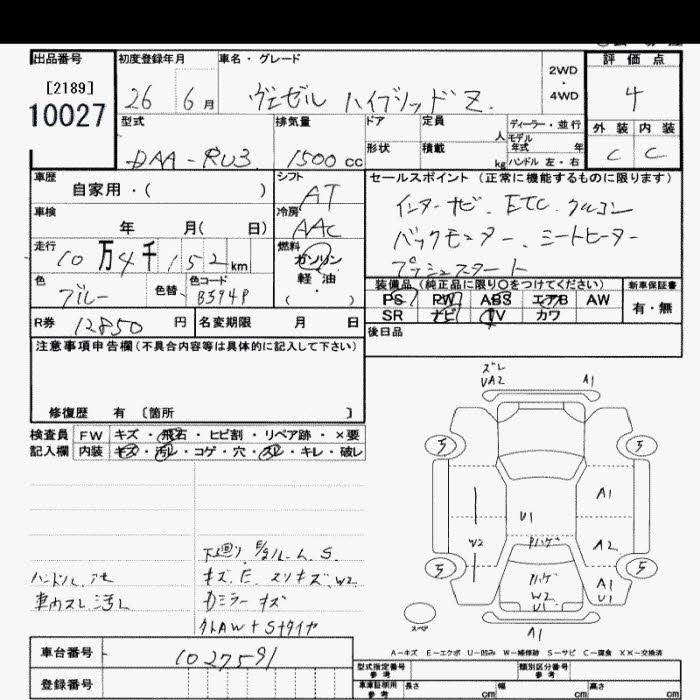 出品番号
[2189]
10027
初度登録年月
26 6 月
車名・グレード
ヴェゼル ハイブリッドZ
2WD
・
4WD
評 価 点
4
外 装 内 装
C C
型式
DAA-RU3
排気量
1500 cc
ドア
定員
人
形状
積載
kg
ディーラー・並行
モデル
年式 年
ハンドル 左・右
車歴
自家用・( )
シフト
AT
車検
年 月( 日)
冷房
AAC
走行
10 万 4 千 152 km
燃料
ガソリン
軽・油
・
( )
色
ブルー
色替
色コード
B594P
R券 12850 円
名変期限 月 日
セールスポイント (正常に機能するものに限ります)
インターナビ、ETC、クルコン
バックモニター、シートヒーター
プッシュスタート
装備品 (純正品に限り○をつけてください)
PS PW ABS エアB AW
SR ナビ TV カワ
新車保証書
有・無
後日品
注意事項申告欄 (不具合内容等は具体的に記入して下さい)
修復歴 有 〔箇所 〕
検査員 FW キズ・飛石・ヒビ割・リペア跡・×要
記入欄 内装 キズ・汚レ・コゲ・穴・スレ・キレ・破レ
下廻り
キズ、E、スリキズ、W2
ハンドル
車内スレ汚レ
Dミラーキズ
外AW+Sタイヤ
ズレ
UA2 A1
5 5
A1
U1
W2
Pハゲ
A2
5 5
Pハゲ
W2
U1
A1
U1
スペア
A1
A-キズ E-エクボ U-凹み W-補修跡 S-サビ C-腐食 XX-交換済
車台番号 1027591
登録番号
型式指定番号
参考
類別区分番号
参考
車庫証明用
参考
長さ cm
幅 cm
高さ cm